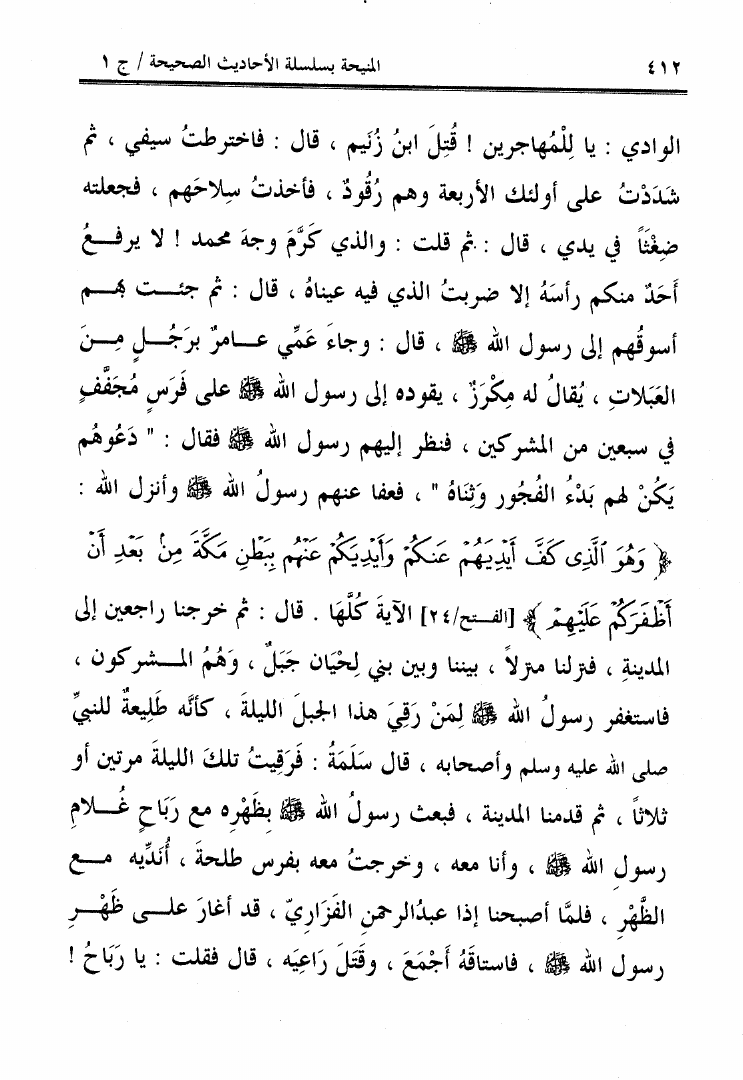 ٤١٢ المنيحة بسلسلة الأحاديث الصحيحة / ج ١
الوادي : يا لِلْمُهاجرين ! قُتِلَ ابنُ زُنَيم ، قال : فاخترطتُ سيفي ، ثم
شَدَدْتُ على أولئك الأربعة وهم رُقُودٌ ، فأخذتُ سِلاحَهم ، فجعلته
ضِغْثَاً في يدي ، قال : ثم قلت : والذي كَرَّمَ وجهَ محمد ! لا يرفعُ
أَحَدٌ منكم رأسَهُ إلا ضربتُ الذي فيه عيناهُ ، قال : ثم جئت بهم
أسوقُهم إلى رسول الله ﷺ ، قال : وجاءَ عَمِّي عامرٌ برَجُلٍ مِنَ
العَبَلاتِ ، يُقالُ له مِكْرَزٌ ، يقوده إلى رسول الله ﷺ على فَرَسٍ مُجَفَّفٍ
في سبعين من المشركين ، فنظر إليهم رسول الله ﷺ فقال : " دَعُوهُم
يَكُنْ لهم بَدْءُ الفُجُور وَثِنَاهُ " ، فعفا عنهم رسولُ الله ﷺ وأنزل الله :
﴿ وَهُوَ ٱلَّذِى كَفَّ أَيْدِيَهُمْ عَنكُمْ وَأَيْدِيَكُمْ عَنْهُم بِبَطْنِ مَكَّةَ مِنۢ بَعْدِ أَنْ
أَظْفَرَكُمْ عَلَيْهِمْ ﴾ [الفتح/٢٤] الآيةَ كُلَّهَا . قال : ثم خرجنا راجعين إلى
المدينةِ ، فنزلنا منزلاً ، بيننا وبين بني لِحْيَان جَبَلٌ ، وَهُمُ المشركون ،
فاستغفر رسولُ الله ﷺ لِمَنْ رَقِيَ هذا الجبلَ الليلةَ ، كأنَّه طَلِيعةٌ للنبيِّ
صلى الله عليه وسلم وأصحابه ، قال سَلَمَةُ : فَرَقِيتُ تلكَ الليلةَ مرتين أو
ثلاثاً ، ثم قدمنا المدينة ، فبعث رسولُ الله ﷺ بِظَهْرِه مع رَبَاحٍ غُلامِ
رسولِ الله ﷺ ، وأنا معه ، وخرجتُ معه بفرس طلحةَ ، أُنَدِّيه مع
الظَّهْرِ ، فلمَّا أصبحنا إذا عبدُالرحمنِ الفَزَارِيّ ، قد أغارَ على ظَهْرِ
رسول الله ﷺ ، فاستاقَهُ أَجْمَعَ ، وقَتَلَ رَاعِيَه ، قال فقلت : يا رَبَاحُ !